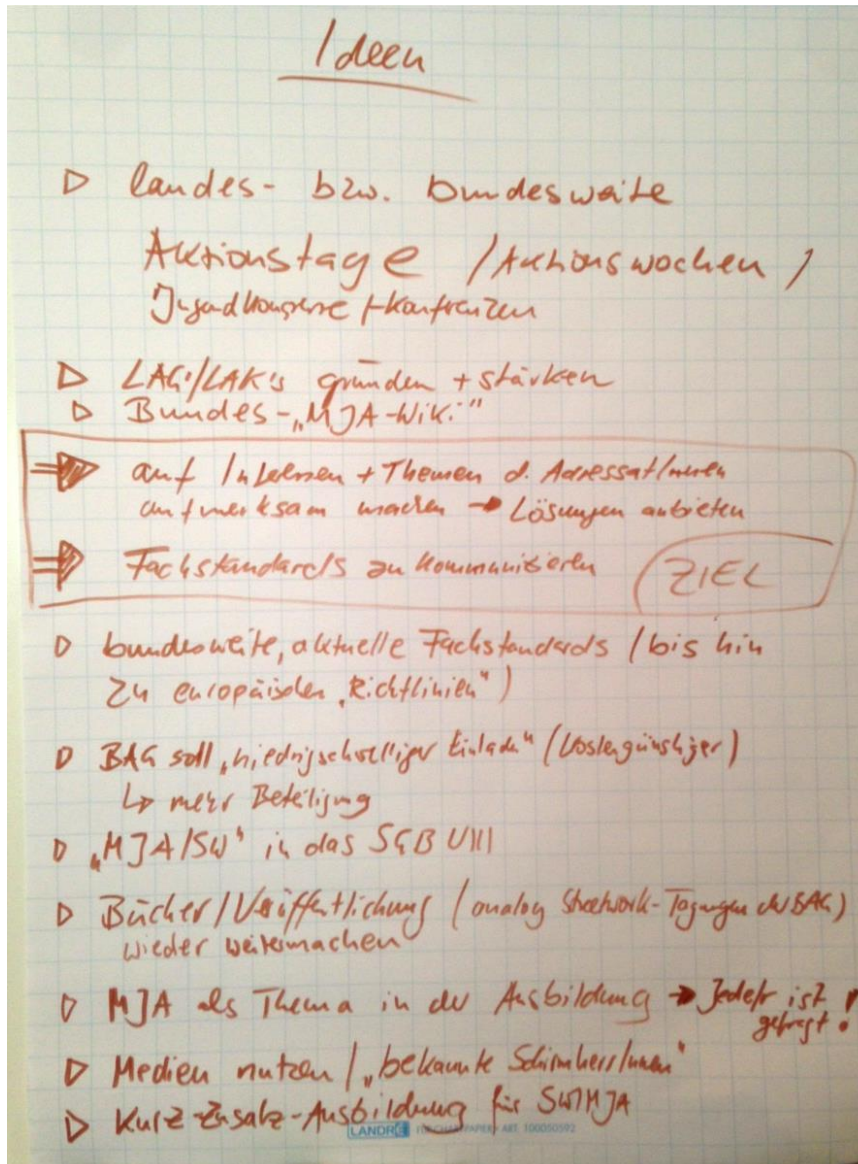 Ideen
▷ landes- bzw. bundesweite
Aktionstage / Aktionswochen /
Jugendkongresse /-konferenzen
▷ LAG's/LAK's gründen + stärken
▷ Bundes-„MJA-Wiki"
⇒ auf Interessen + Themen d. Adressat/innen
aufmerksam machen → Lösungen anbieten
⇒ Fachstandards zu kommunizieren
ZIEL
▷ bundesweite, aktuelle Fachstandards (bis hin
zu europäischen „Richtlinien")
▷ BAG soll „niedrigschwelliger einladen" (kostengünstiger)
↳ mehr Beteiligung
▷ „MJA/SW" in das SGB VIII
▷ Bücher/Veröffentlichung (analog Streetwork-Tagungen der BAG)
wieder weitermachen
▷ MJA als Thema in der Ausbildung → Jede/r ist
gefragt!
▷ Medien nutzen / „bekannte Schirmherr/innen"
▷ Kurz-Zusatz-Ausbildung für SW/MJA
LANDRÉ ART. 100050592